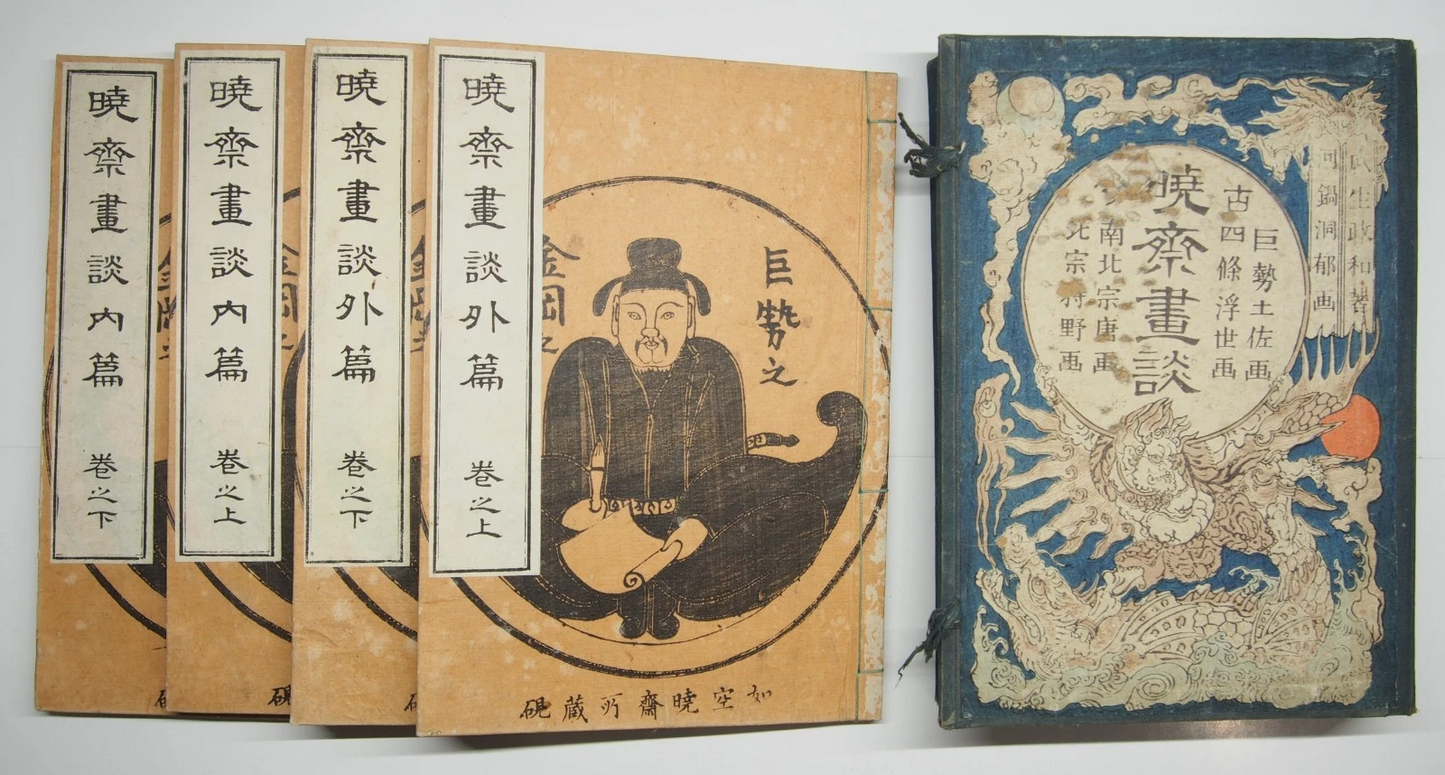 暁斎畫談内篇 巻之下
暁斎畫談内篇 巻之上
暁斎畫談外篇 巻之下
暁斎畫談外篇 巻之上
巨勢之
金岡
如空暁齋所蔵硯
瓜生政和著
河鍋洞郁画
巨勢土佐画
古四條浮世画
暁斎畫談
南北宗唐画
北宗狩野画